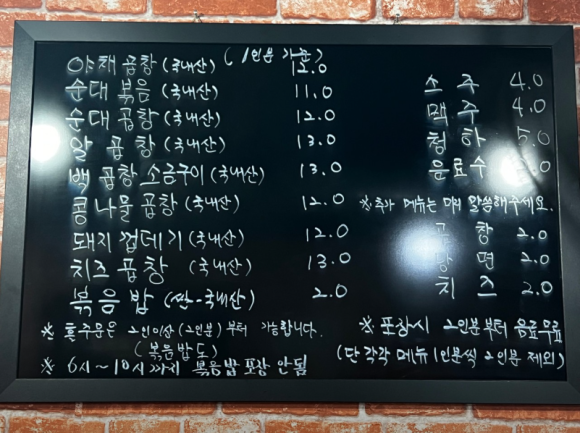 (1인분 기준)
야채 곱창 (국내산) 12.0
순대 볶음 (국내산) 11.0
순대 곱창 (국내산) 12.0
알 곱창 (국내산) 13.0
백 곱창 소금구이 (국내산) 13.0
콩나물 곱창 (국내산) 12.0
돼지 껍데기 (국내산) 12.0
치즈 곱창 (국내산) 13.0
볶음밥 (쌀-국내산) 2.0
※ 홀주문은 2인이상 (2인분) 부터 가능합니다.
(볶음밥도)
※ 6시~10시까지 볶음밥 포장 안됨
소주 4.0
맥주 4.0
청하 5.0
음료수
※추가 메뉴는 미리 말씀해주세요.
곱창 2.0
당면 2.0
치즈 2.0
※ 포장시 2인분부터 음료무료
(단 각각 메뉴 1인분씩 2인분 제외)